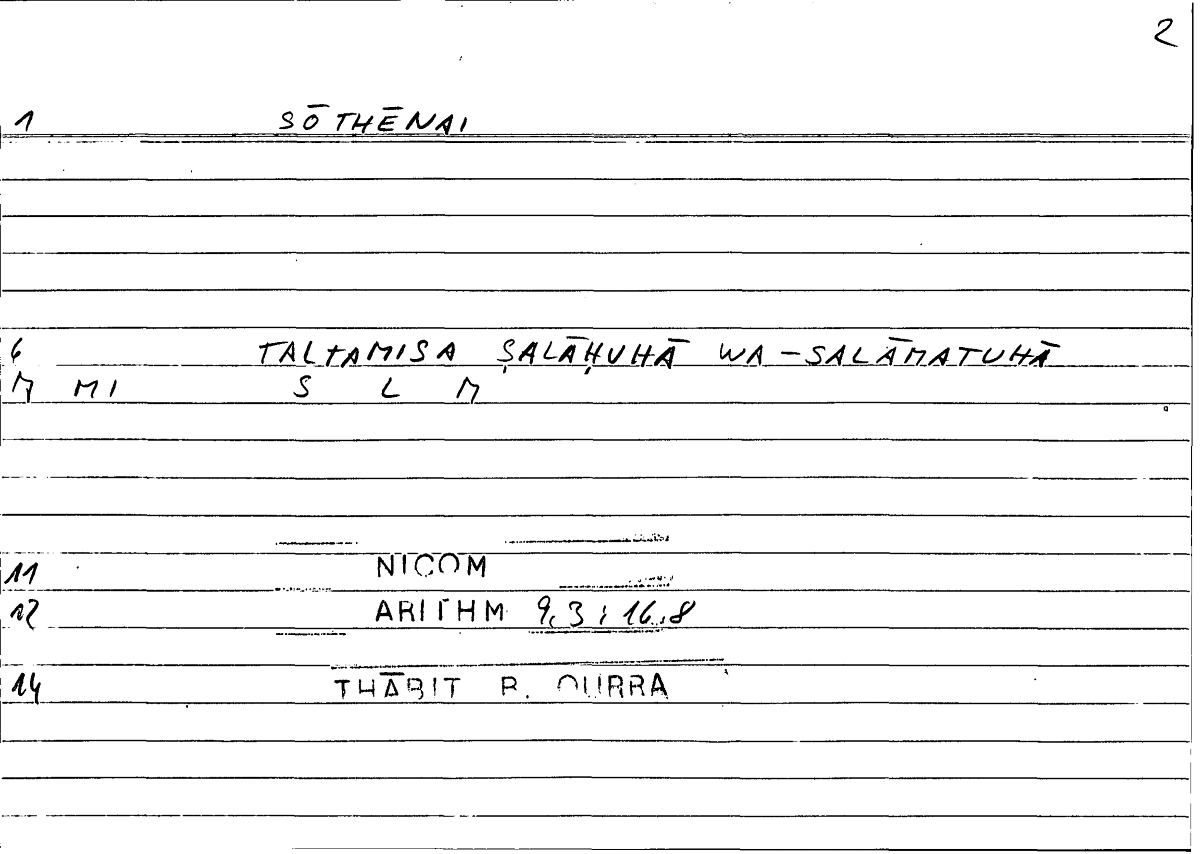 2
1 SŌTHĒNAI
6 TALTAMISA ṢALĀḤUHĀ WA-SALĀMATUHĀ
M MI S L M
11 NICOM
12 ARITHM 9,3 ; 16,8
14 THĀBIT B. QURRA